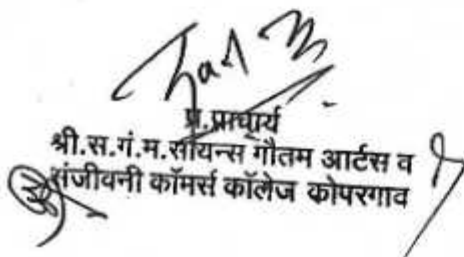 प्र.प्राचार्य
श्री.स.गं.म.सायन्स गौतम आर्टस व
संजीवनी कॉमर्स कॉलेज कोपरगाव